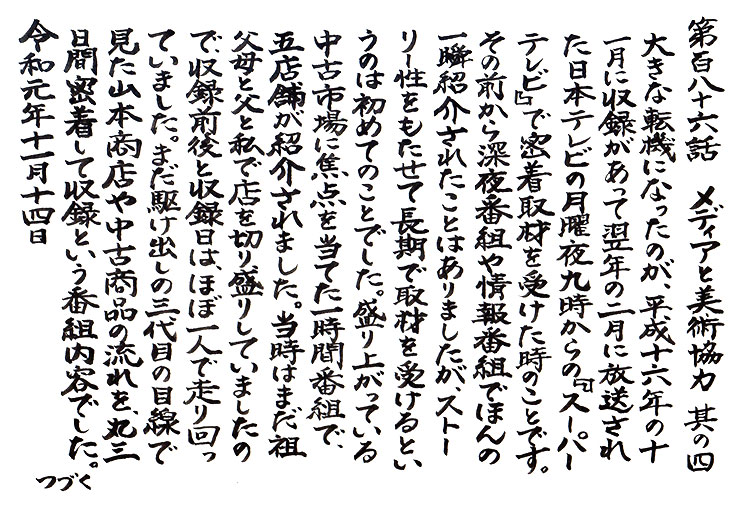 第百八十六話　メディアと美術協力　其の四
大きな転機になったのが、平成十六年の十
一月に収録があって翌年の二月に放送され
た日本テレビの月曜夜九時からの『スーパー
テレビ』で密着取材を受けた時のことです。
その前から深夜番組や情報番組でほんの
一瞬紹介されたことはありましたが、ストー
リー性をもたせて長期で取材を受けるとい
うのは初めてのことでした。盛り上がっている
中古市場に焦点を当てた一時間番組で、
五店舗が紹介されました。当時はまだ祖
父母と父と私で店を切り盛りしていましたの
で、収録前後と収録日は、ほぼ一人で走り回っ
ていました。まだ駆け出しの三代目の目線で
見た山本商店や中古商品の流れを、丸三
日間密着して収録という番組内容でした。
令和元年十一月十四日
つづく